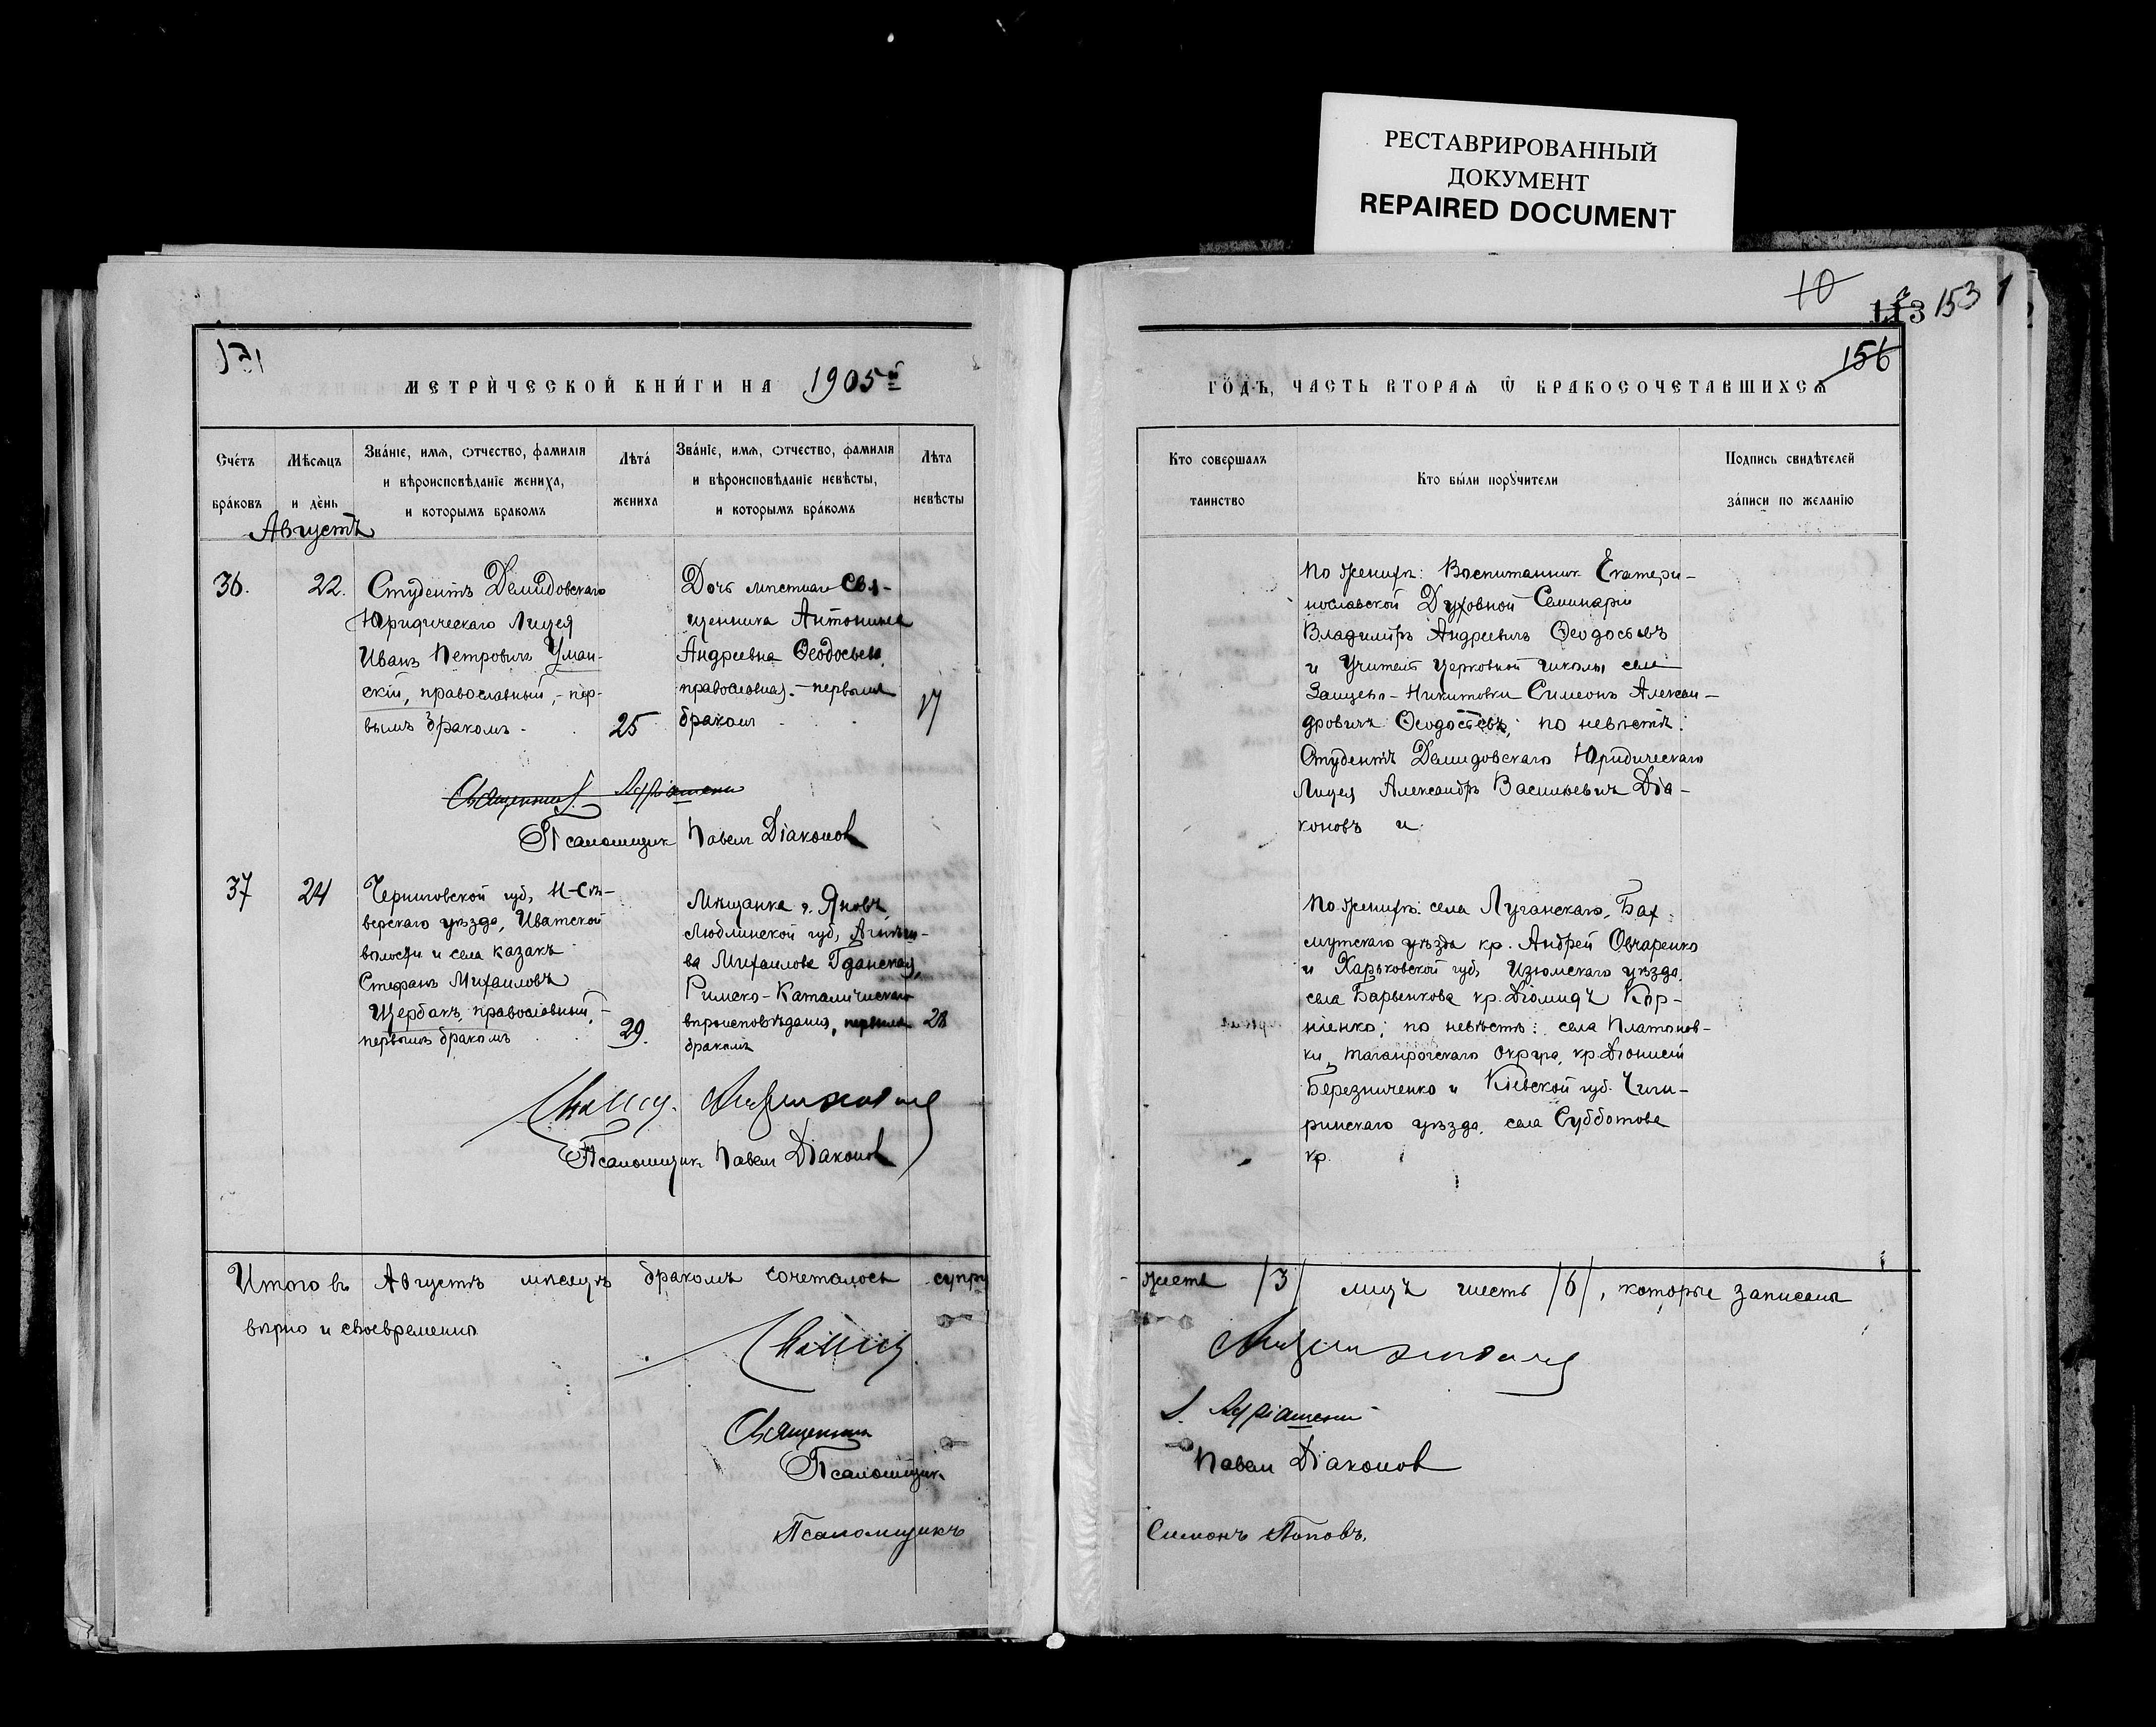 РЕСТАВРИРОВАННЫЙ
ДОКУМЕНТ
REPAIRED DOCUMENT
10
153
156
МЕТРИЧЕСКОЙ КНИГИ НА 1905й
ГОДЪ, ЧАСТЬ ВТОРАЯ Ѿ БРАКОСОЧЕТАВШИХСЯ
Счетъ
браковъ
Мѣсяцъ
и день
Званіе, имя, отчество, фамилія
и вѣроисповѣданіе жениха,
и которымъ бракомъ
Лѣта
жениха
Званіе, имя, отчество, фамилія
и вѣроисповѣданіе невѣсты,
и которымъ бракомъ
Лѣта
невѣсты
Кто совершалъ
таинство
Кто были поручители
Подпись свидѣтелей
записи по желанію
Августъ
36.
22.
Студентъ Демидовскаго
Юридическаго Лицея
Иванъ Петровичъ Уман-
скій, православный, - пер-
вымъ бракомъ.
25
Дочь мѣстнаго Свя-
щенника Антонина
Андреевна Ѳеодосьева,
православная. - первымъ
бракомъ
17
По женихѣ: Воспитанникъ Екатери-
нославской Духовной Семинаріи
Владиміръ Андреевичъ Ѳеодосьевъ
и Учитель церковной школы села
Зайцево-Никитовки Симеонъ Алексан-
дровичъ Ѳеодосьевъ; по невѣстѣ:
Студентъ Демидовскаго Юридическаго
Лицея Александръ Васильевичъ Діа-
коновъ и
Священникъ
Псаломщик Павелъ Діаконов
37
24
Черниговской губ., Н-Сѣ-
верскаго уѣзда, Ивотской
волости и села казакъ
Стефанъ Михаиловъ
Щербакъ, православный, -
первымъ бракомъ
29.
Мѣщанка г. Яновъ
Люблинской губ,
ва Михаилова Гданская,
Римско-Католическаго
вѣроисповѣданія, первымъ
бракомъ
28
По женихѣ: села Луганскаго, Бах-
мутскаго уѣзда кр. Андрей Овчаренко
и Харьковской губ, Изюмскаго уѣзда,
села Барвенкова кр. Діомидъ Кор-
ніенко; по невѣстѣ: села Платонов-
ки, Таганрогскаго округа, кр. Діонисій
Березниченко и Кіевской губ. Чиги-
ринскаго уѣзда, села Субботова
кр.
Свящ.
Псаломщик Павелъ Діаконов
Итого въ Августѣ мѣсяцѣ бракомъ сочеталось супру
жествъ /3/ лицъ шесть /6/, которые записаны
вѣрно и своевременно
Свящ.
Священникъ
Псаломщик Павелъ Діаконов
Псаломщикъ Симонъ Поповъ.